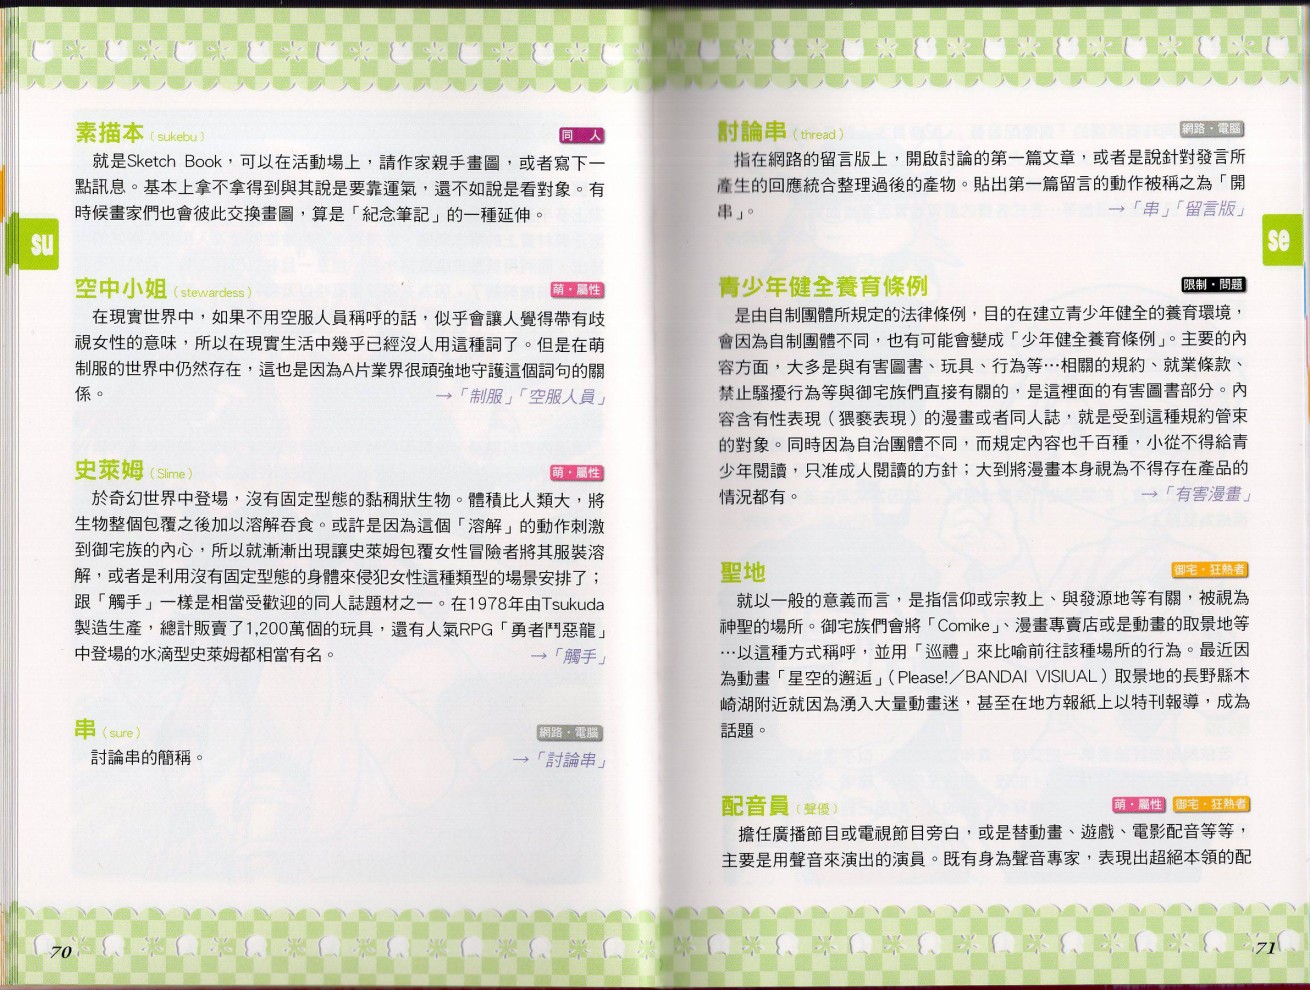 素描本（sukebu） 同 人
就是Sketch Book，可以在活動場上，請作家親手畫圖，或者寫下一
點訊息。基本上拿不拿得到與其說是要靠運氣，還不如說是看對象。有
時候畫家們也會彼此交換畫圖，算是「紀念筆記」的一種延伸。
su
空中小姐（stewardess） 萌・屬性
在現實世界中，如果不用空服人員稱呼的話，似乎會讓人覺得帶有歧
視女性的意味，所以在現實生活中幾乎已經沒人用這種詞了。但是在萌
制服的世界中仍然存在，這也是因為A片業界很頑強地守護這個詞句的關
係。 →「制服」「空服人員」
史萊姆（Slime） 萌・屬性
於奇幻世界中登場，沒有固定型態的黏稠狀生物。體積比人類大，將
生物整個包覆之後加以溶解吞食。或許是因為這個「溶解」的動作刺激
到御宅族的內心，所以就漸漸出現讓史萊姆包覆女性冒險者將其服裝溶
解，或者是利用沒有固定型態的身體來侵犯女性這種類型的場景安排了；
跟「觸手」一樣是相當受歡迎的同人誌題材之一。在1978年由Tsukuda
製造生產，總計販賣了1,200萬個的玩具，還有人氣RPG「勇者鬥惡龍」
中登場的水滴型史萊姆都相當有名。 →「觸手」
串（sure） 網路・電腦
討論串的簡稱。 →「討論串」
70
討論串（thread） 網路・電腦
指在網路的留言版上，開啟討論的第一篇文章，或者是說針對發言所
產生的回應統合整理過後的產物。貼出第一篇留言的動作被稱之為「開
串」。 →「串」「留言版」
se
青少年健全養育條例 限制・問題
是由自制團體所規定的法律條例，目的在建立青少年健全的養育環境，
會因為自制團體不同，也有可能會變成「少年健全養育條例」。主要的內
容方面，大多是與有害圖書、玩具、行為等…相關的規約、就業條款、
禁止騷擾行為等與御宅族們直接有關的，是這裡面的有害圖書部分。內
容含有性表現（猥褻表現）的漫畫或者同人誌，就是受到這種規約管束
的對象。同時因為自治團體不同，而規定內容也千百種，小從不得給青
少年閱讀，只准成人閱讀的方針；大到將漫畫本身視為不得存在產品的
情況都有。 →「有害漫畫」
聖地 御宅・狂熱者
就以一般的意義而言，是指信仰或宗教上、與發源地等有關，被視為
神聖的場所。御宅族們會將「Comike」、漫畫專賣店或是動畫的取景地等
…以這種方式稱呼，並用「巡禮」來比喻前往該種場所的行為。最近因
為動畫「星空的邂逅」（Please!／BANDAI VISIUAL）取景地的長野縣木
崎湖附近就因為湧入大量動畫迷，甚至在地方報紙上以特刊報導，成為
話題。
配音員（聲優） 萌・屬性 御宅・狂熱者
擔任廣播節目或電視節目旁白，或是替動畫、遊戲、電影配音等等，
主要是用聲音來演出的演員。既有身為聲音專家，表現出超絕本領的配
71